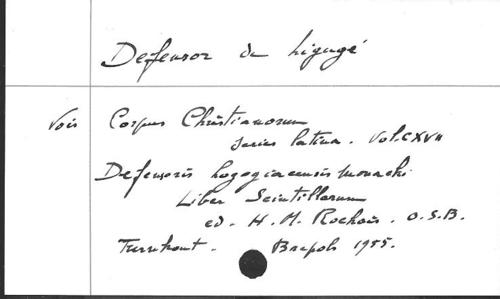 Defensor de Ligugé
Vois Corpus Christianorum
series latina. Vol. CXVII
Defensoris Logogiacensis monachi
Liber Scintillarum
ed. H. M. Rochais. O.S.B.
Turnhout. Brepols 1955.